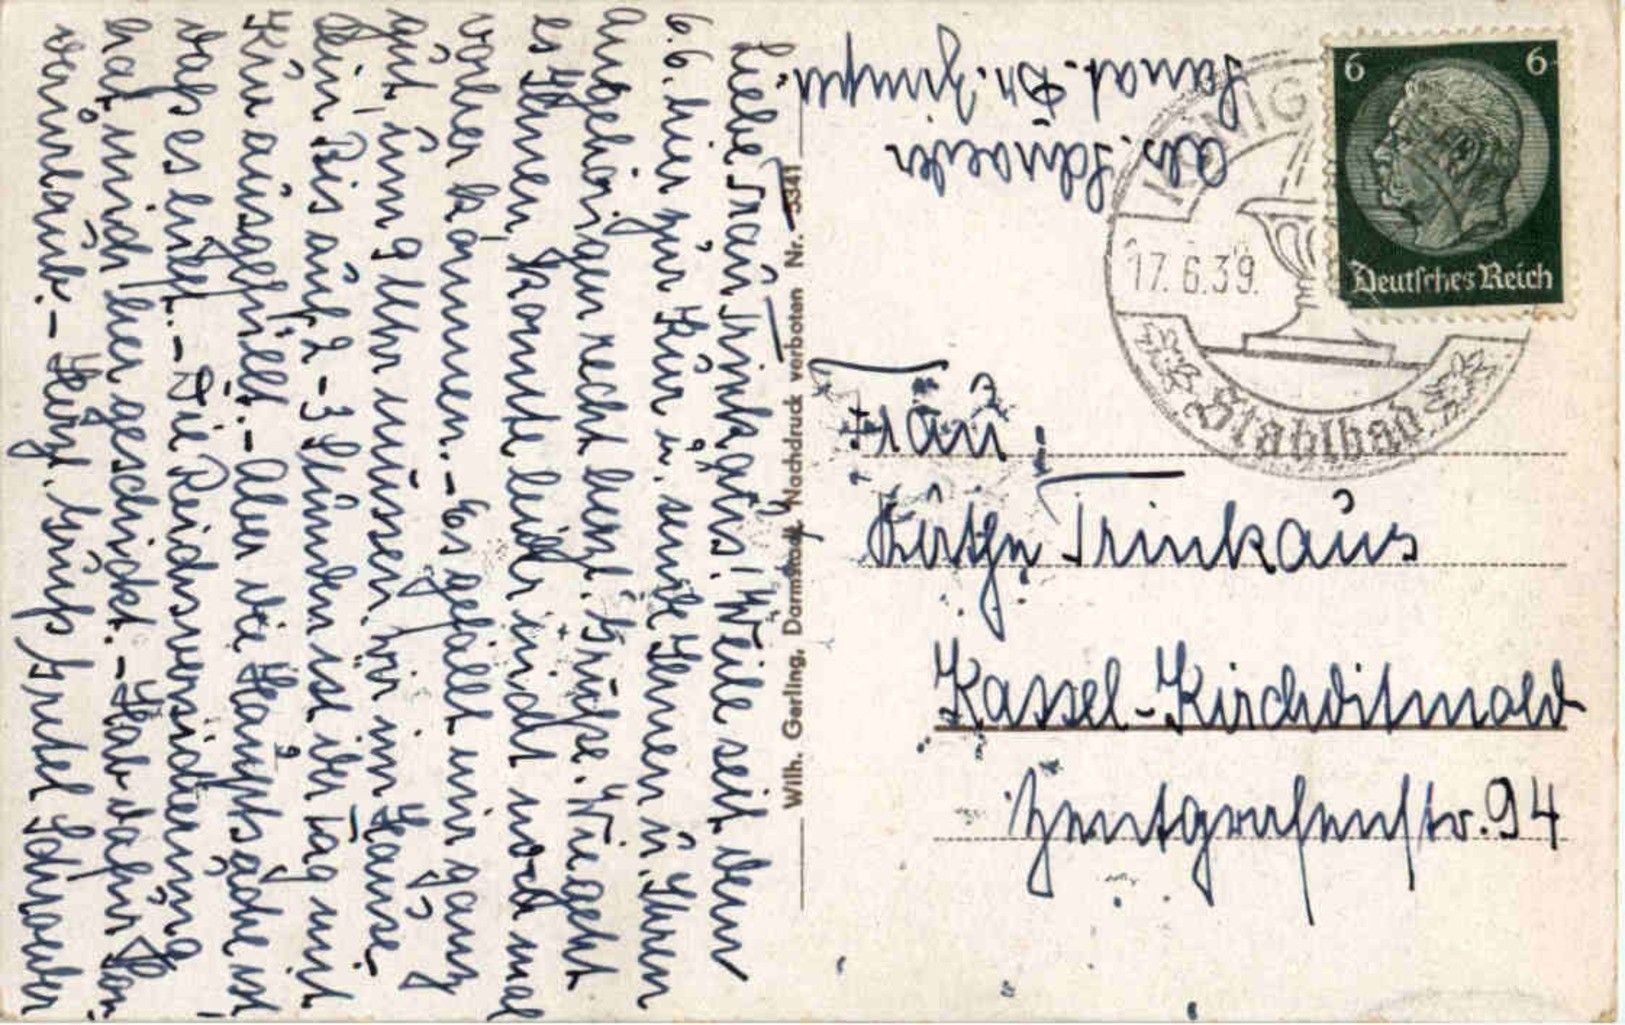 Liebe Frau Trinkaus! Weile seit dem
6.6. hier zur Kur u. sende Ihnen u. Ihren
Angehörigen recht herzl. Grüße. Wie geht
es Ihnen, konnte leider nicht noch mal
vorher kommen. – Es gefällt mir ganz
gut, um 9 Uhr müssen wir im Hause
sein. Bis auf 2–3 Stunden ist der Tag mit
Kur ausgefüllt. – Aber die Hauptsache ist
daß es hilft. – Die Reichsversicherung
hat mich her geschickt. – Hab dafür
urlaub. – Herzl. Gruß Gretel Schroeder
Wilh. Gerling, Darmstadt Nachdruck verboten Nr. 3341
Abs. Schroeder
Sanat. Dr.
KÖNIG
17.6.39.
Stahlbad
6 6
Deutsches Reich
Frau
Käthe Trinkaus
Kassel-Kirchditmold
Zentgrafenstr. 94